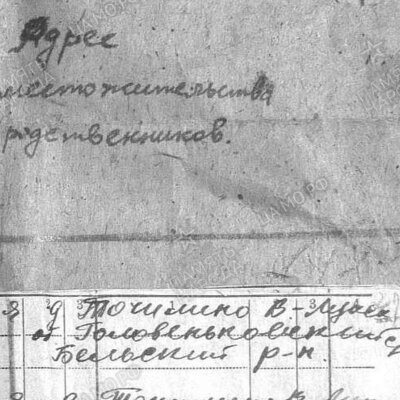 Адрес
местожительства
родственников.
д Точилино В.-Луки
Головеньковский
Бельский р-н.
Точилино В.